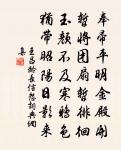 奉帚平明金殿開
暫將團扇暫徘徊
玉顏不及寒鴉色
猶帶昭陽日影來
王昌齡長信怨詞典網
集